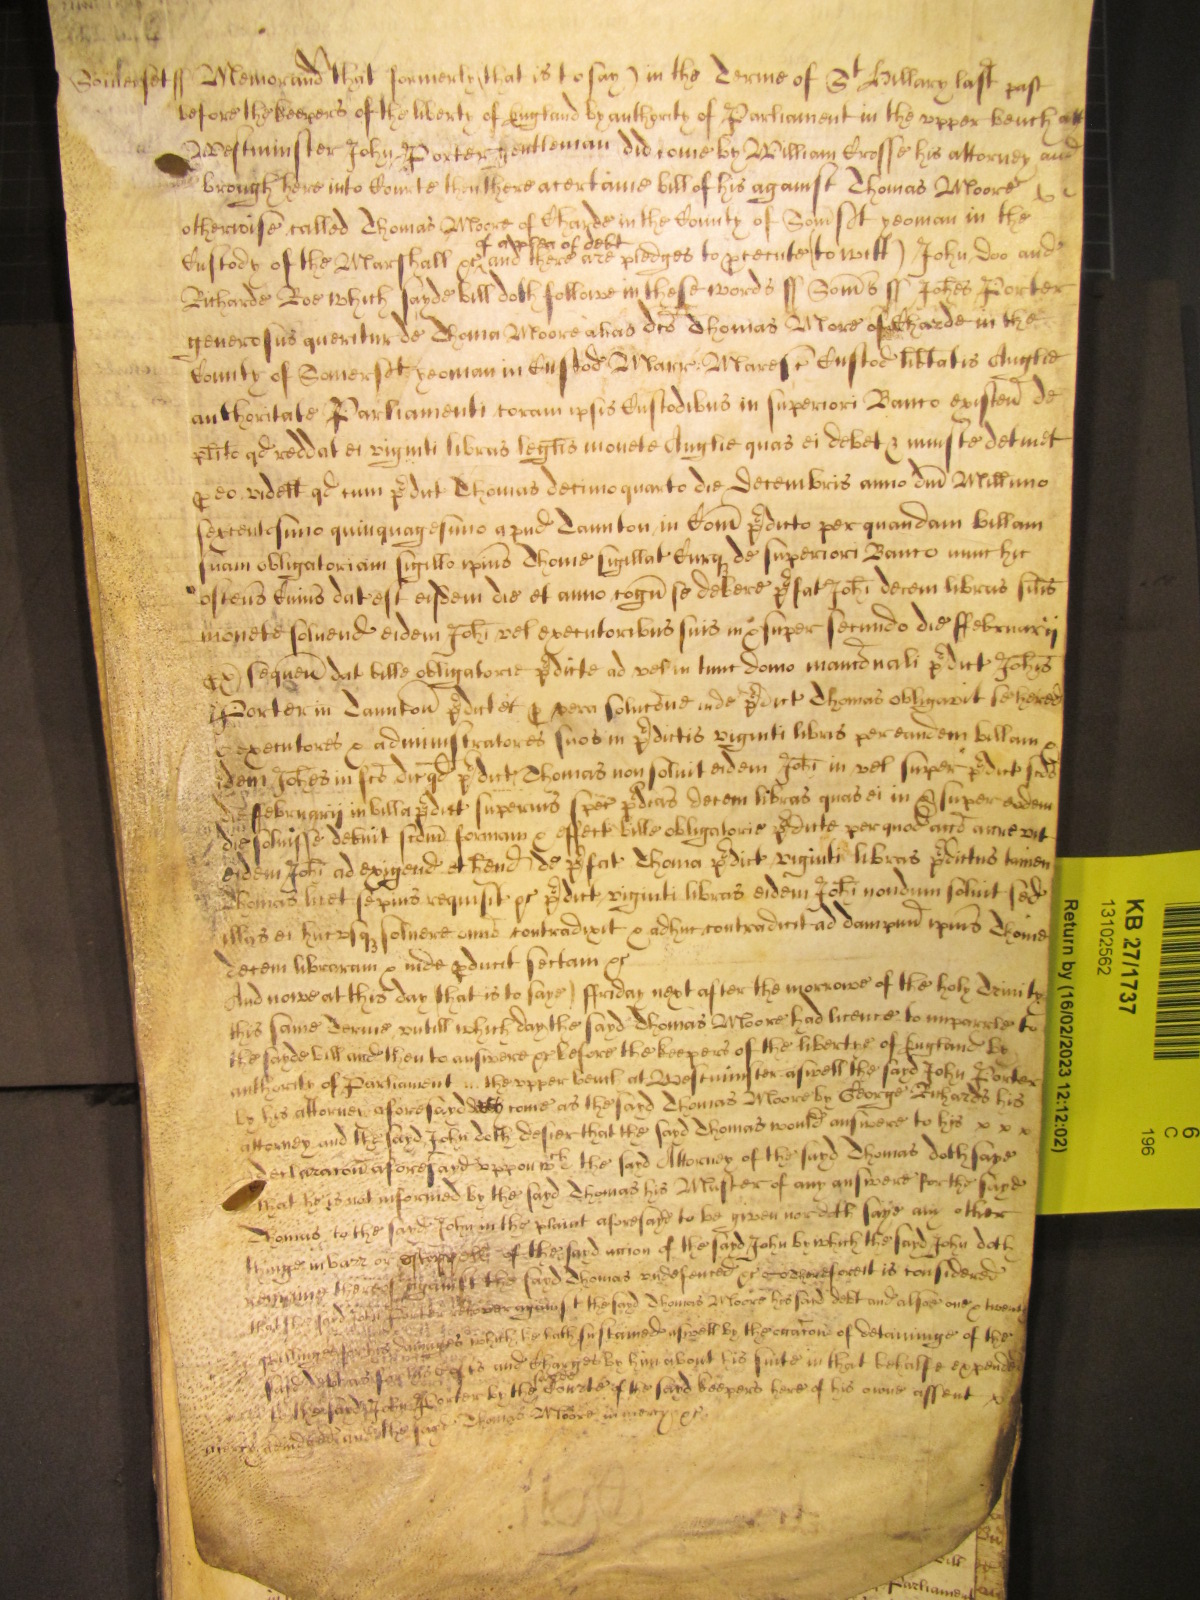 Somerset ss Memorand that formerly (that is to say) in the Terme of St Hillary last past
before the keepers of the liberty of England by authority of Parliament in the upper bench att
Westminster John Porter gentleman did come by William Crosse his attorney and
brough here into Courte then there a certaine bill of his against Thomas Moore
otherwise called Thomas Moore of Charde in the County of Somset yeoman in the
of a plea of debt
Custody of the Marshall &c and there are pledges to prsecute (to witt) John Doo and
Richarde Roe which sayde bill doth followe in these words ss Soms ss Johes Porter
generosus queritur de Thoma Moore alias dco Thomas More of Charde in the
County of Somerset yeoman in Custod Marr Maresc Custod libtatis Anglie
authoritate Parliamenti coram ipsis Custodibus in superiori Banco existen de
plito qd reddat ei viginti libras leglis monete Anglie quas ei debet & iniuste detinet
p eo videlt qd cum pdict Thomas decimo quarto die Decembris anno dni Millimo
sexcentesimo quinquagesimo apud Taunton in Com pdicto per quandam billam
suam obligatoriam sigillo ipius Thome sigillat Curq de superiori Banco nunc hic
ostens Cuius dat est eisdem die et anno cogn se debere pfat Johi decem libras
monete solvend eidem Johi vel executoribus suis in & super secundo die ffebruarij
px sequen dat bille obligatorie pdicte ad vel in tunc domo manconali pdict Johis
Porter in Taunton pdict et p vera solucone inde pdict Thomas obligavit se hered
executores & administratores suos in pdictis viginti libris per eandem billam &
idem Johes in fco dic qd pdict Thomas non solvit eidem Johi in vel super pdict scdo
die ffebruarij in billa pdict superius spec pdcas decem libras quas ei in & super eodem
die solvisse debuit scdum formam & effect bille obligatorie pdicte per quod accio accrevit
eidem Johi ad exigend et hend de pfat Thoma pdict viginti libras pdictus tamen
Thomas licet sepius requisit &c pdict viginti libras eidem Johi nondum solvit sed
illas ei hucusq solvere omio contradixit & adhuc contradicit ad dampnu ipius Thome
decem librarum & inde pducit sectam &c
And nowe at this day that is to saye) ffriday next after the morrowe of the holy Trinity
this same Terme untill which day the sayd Thomas Moore had licence to imparrle to
the sayde bill and then to answere &c before the keepers of the libertye of England by
authority of Parliament in the upper bench at Westminster aswell the sayd John Porter
by his attorney aforesayd come as the sayd Thomas Moore by George Richards his
attorney and the sayd John doth desier that the sayd Thomas would answere to his x x x
declaracon aforesayd uppon wch the sayd Attorney of the sayd Thomas doth saye
that he is not informed by the sayd Thomas his Master of any answere for the sayd
Thomas to the sayd John in the plaint aforesayd to be given nor doth saye any other
thinge in barr or of the sayd accion of the sayd John by which the sayd John doth
remaine thereof against the sayd Thomas undefenced &c wherefore it is considered
that the sayd John Porter recover against the sayd Thomas Moore his said debt and alsoe one & twenty
shillinges for his damages which he hath sustained aswell by the occacon of detaininge of the
said debt as for his costs and charges by him about his suite in that behalfe expended
to the sayd John Porter by the Courte of the sayd keepers here of his owne assent x
adiudged and the sayd Thomas Moore in mercy &c
KB 27/1737
13102562
Return by (16/02/2023 12:12:02)
6
C
196